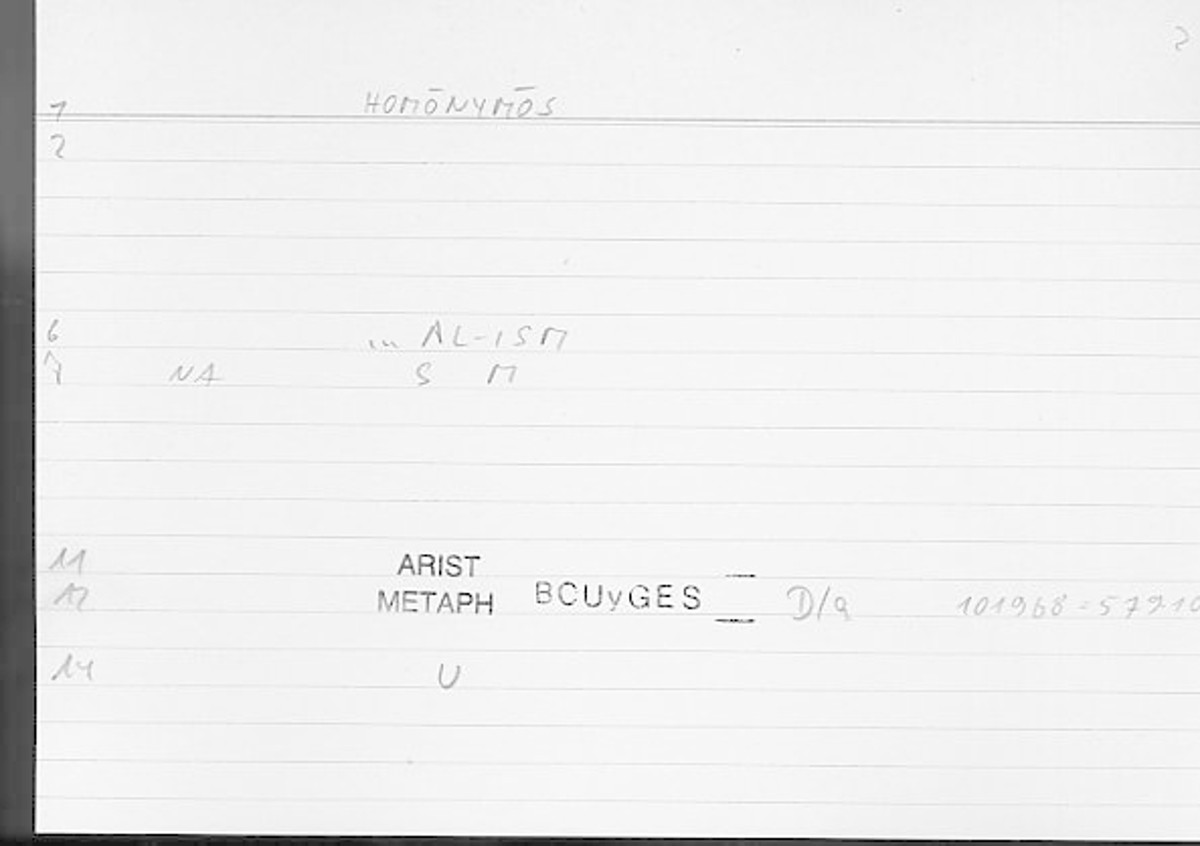 2
1 HOMŌNYMŌS
2
6 ... AL-ISM
7 NA S M
11 ARIST
12 METAPH BCUyGES D/a 101968 = 57910
14 U